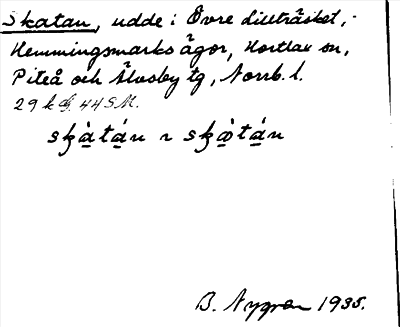 Skatan, udde i Övre Lillträsket,
Hemmingsmarks ägor, Hortlax sn,
Piteå och Älvsby tg, Norrb. l.
29 k 44 SM.
skàtán ~ skàtán
B. Nygren 1935.